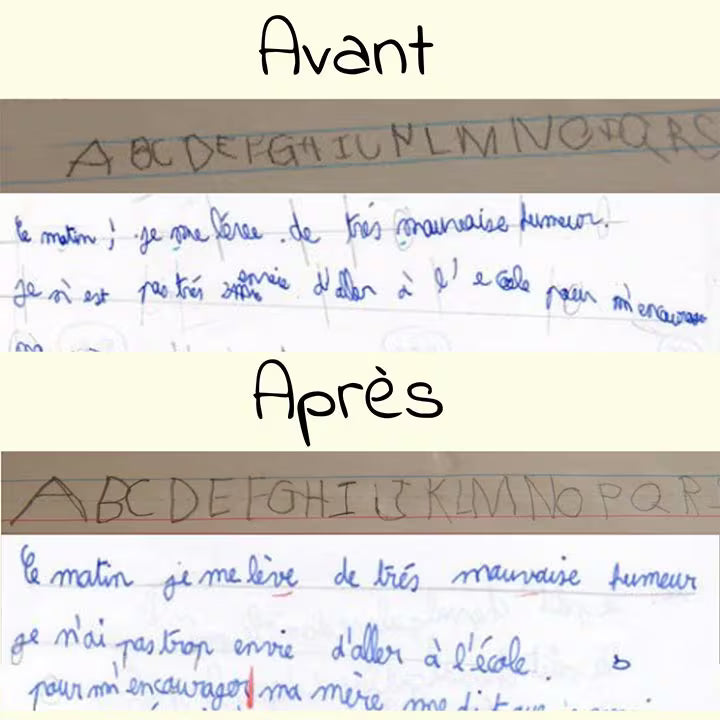 Avant
A B C D E F G H I U N L M N O P Q R S
le matin ; je me lévee . de trés mauvaise humeur.
je n'est pas trés envie d'aller à l' ecole pour m'encourager
Après
A B C D E F G H I U J K L M N O P Q R
le matin je me lève de trés mauvaise humeur
je n'ai pas trop envie d'aller à l'école .
pour m'encourager ma mère me dit que